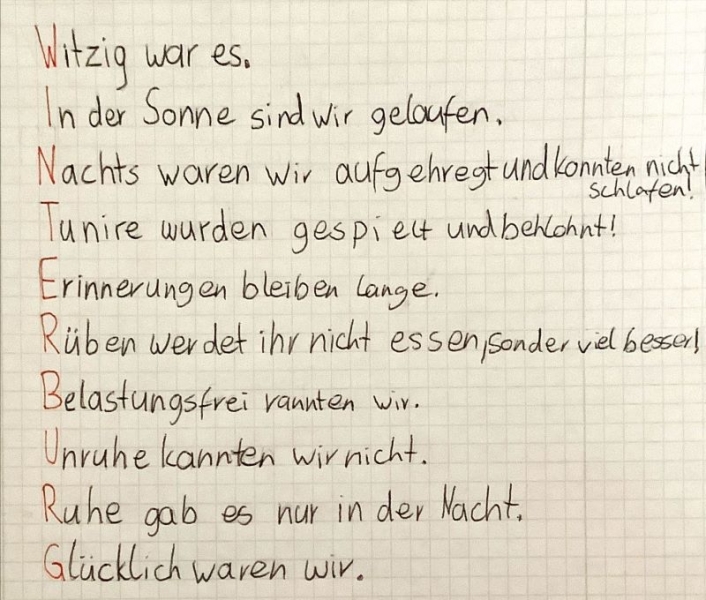 Witzig war es.
In der Sonne sind wir gelaufen.
Nachts waren wir aufgehregt und konnten nicht
schlafen!
Tunire wurden gespielt und behlohnt!
Erinnerungen bleiben lange.
Rüben werdet ihr nicht essen, sonder viel besser!
Belastungsfrei rannten wir.
Unruhe kannten wir nicht.
Ruhe gab es nur in der Nacht.
Glücklich waren wir.